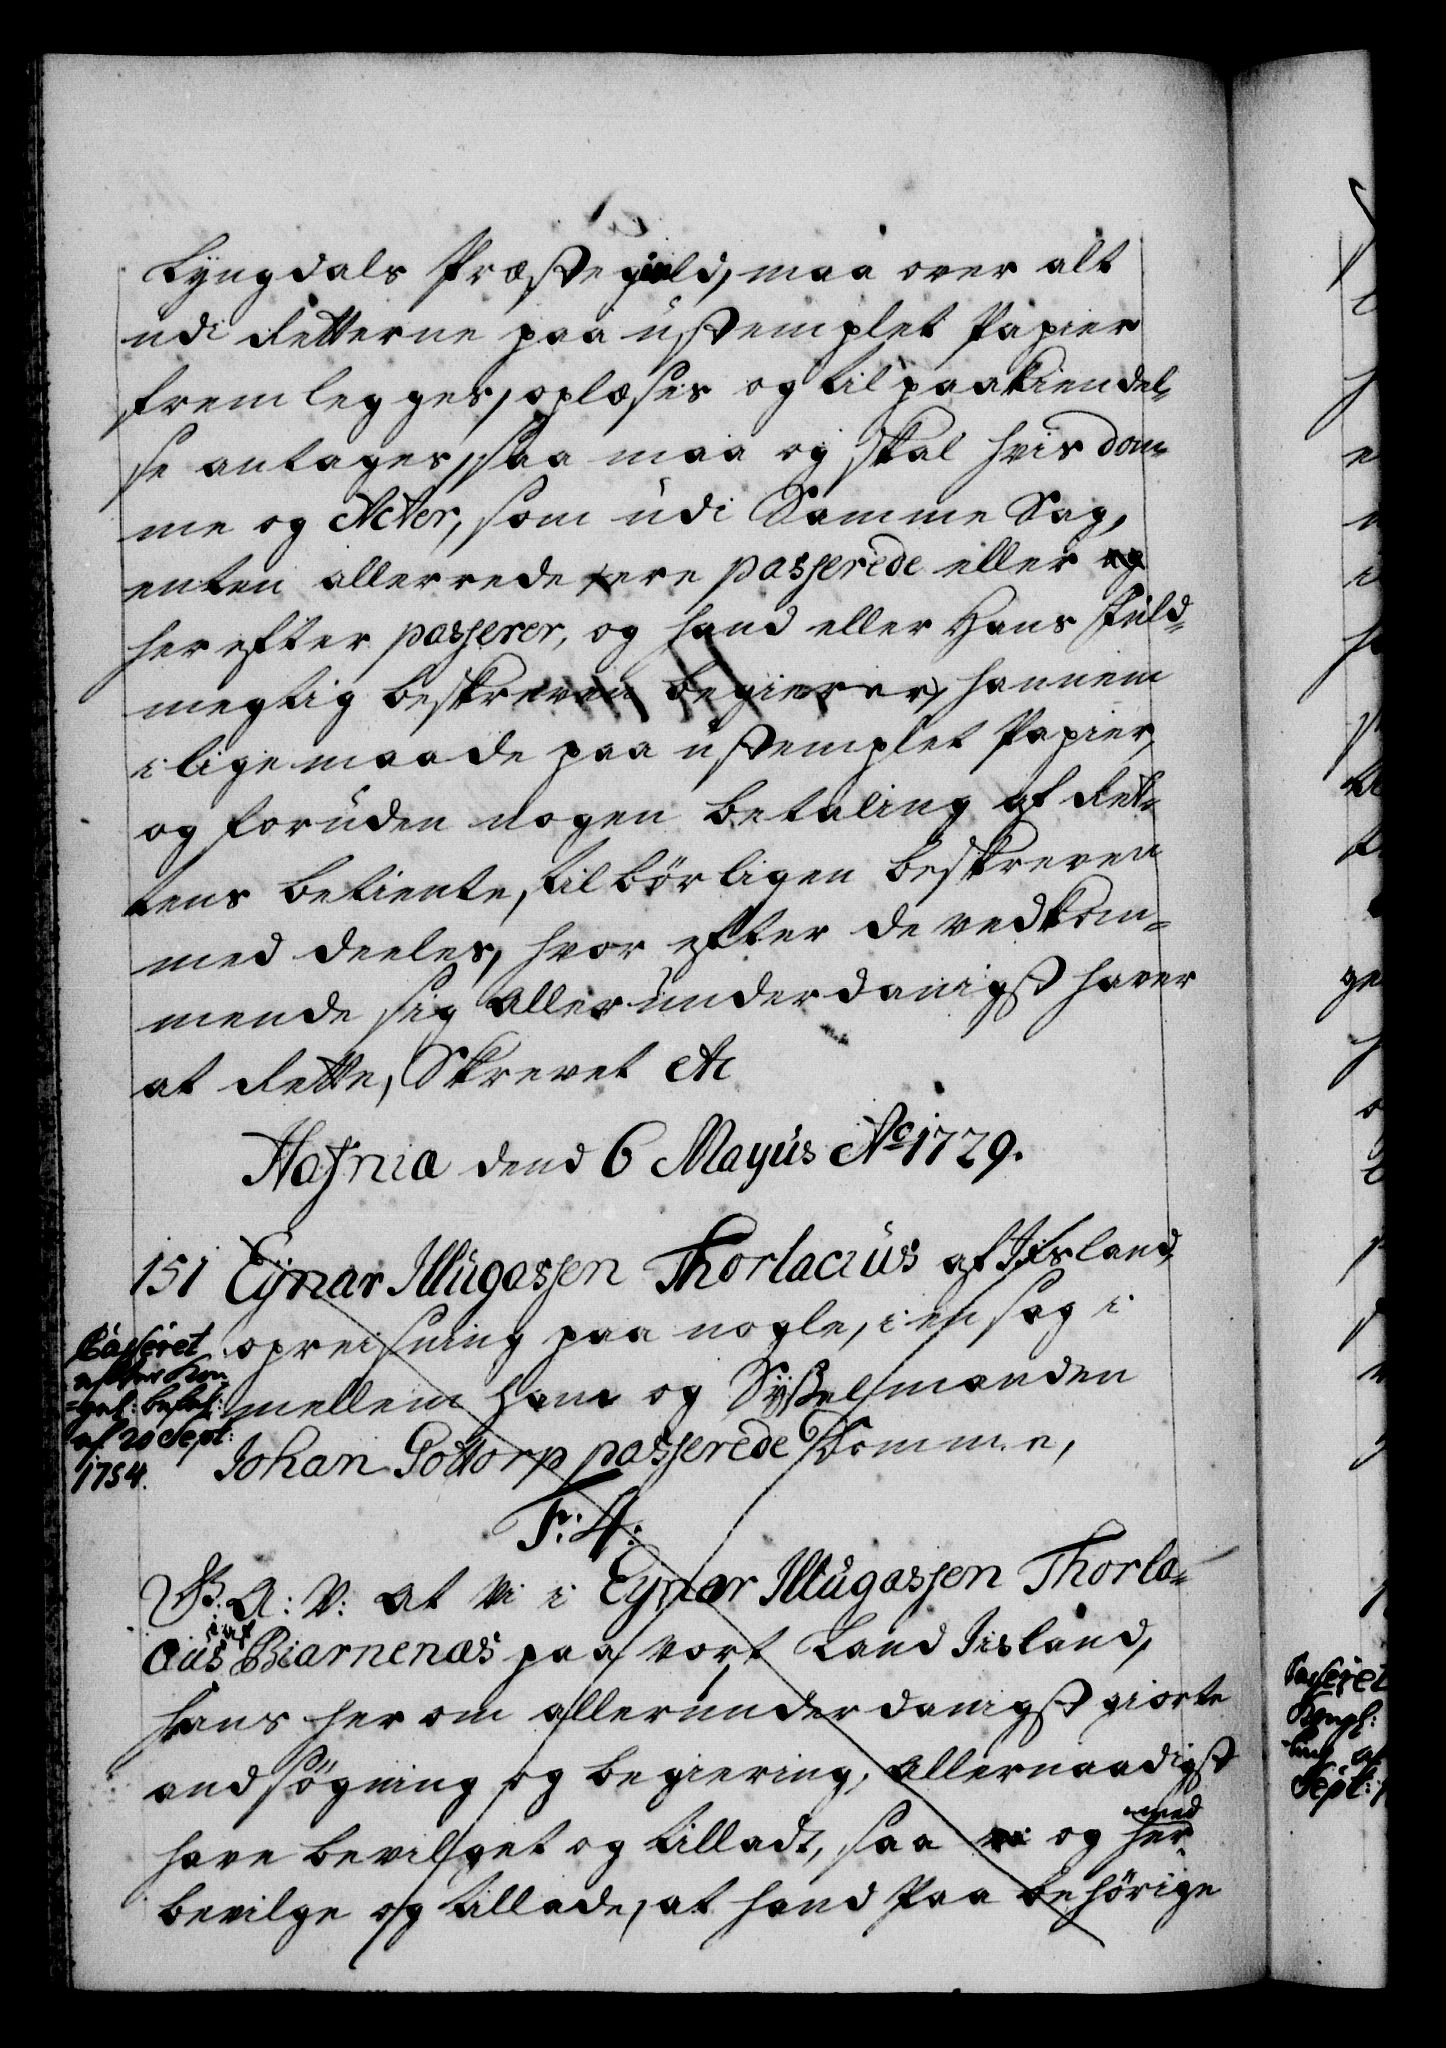 Lyngdals Præstegield, maa over alt
udi Retterne paa ustemplet Papier
fremlegges, oplæses og til paakiendel-
se antages, saa maa og skal hvis dom-
me og Acter, som udi Samme Sag,
enten allerrede ere passerede eller
herefter passerer, og hand eller Hans Fuld-
megtig beskreven begierer, hannem
i lige maade paa ustemplet Papier,
og foruden nogen betaling af Ret-
tens betiente, tilbørligen beskreven
med deeles, hvor efter de vedkom-
mende sig allerunderdanigst haver
at Rette, Skrevet etc
Hafnia dend 6 Mayus Ao 1729.
151 Eynar Illugassen Thorlacius af Iisland,
opreisning paa nogle, i en sag i
mellem ham og Sysselmanden
Johan Gottorp passerede Domme,
Casseret
efter Kon-
gel: befal:
af 20 Sept:
1754.
F: 4:
G. A: V: at Vi i Eynar Illugassen Thorla-
cius Biarnenæs paa vort Land Iisland,
hans her om allerunderdanigst giorte
andsøgning og begiering, allernaadigst
have bevilget og tilladt, saa og her-
med
bevilge og tillade, at hand paa behörige